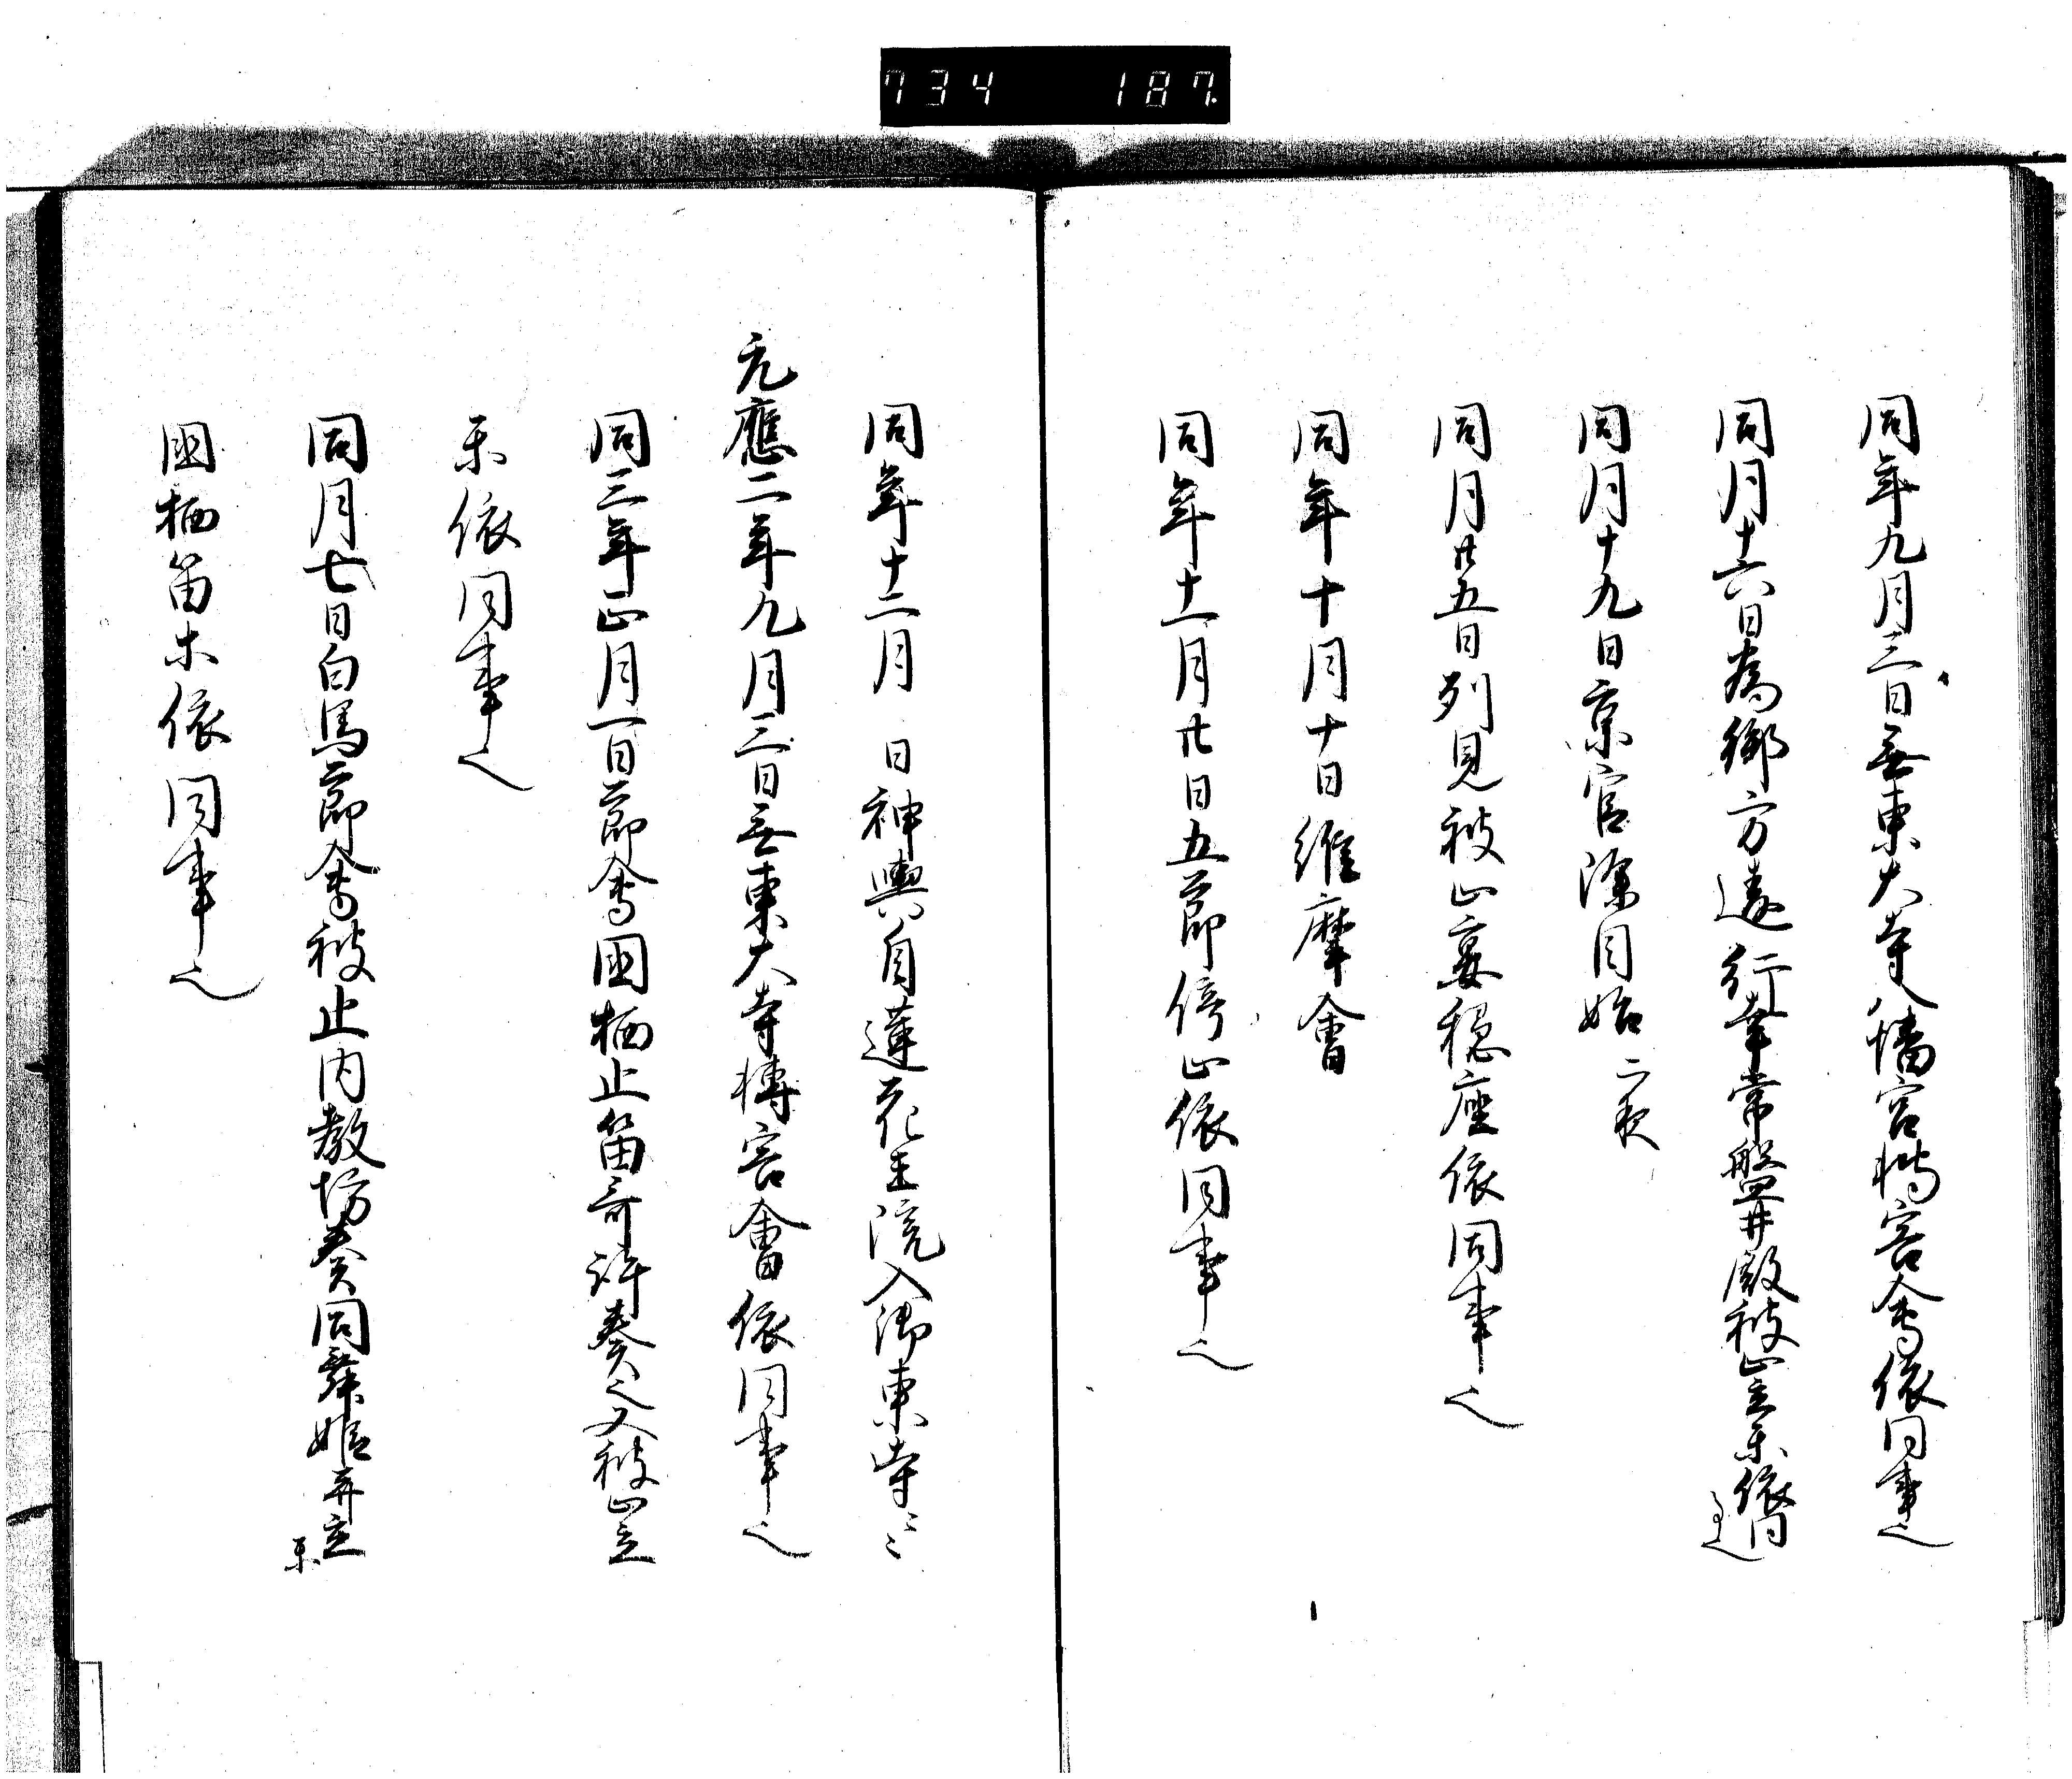 734 187
同年九月三日無東大寺八幡宮転害會依同事也
同月十六日為御方違行幸常盤井殿被止立楽依同
事也
同月十九日京官除目始二夜
同月廿五日列見被止宴穏座依同事也
同年十月十日維摩會
同年十一月廿日五節停止依同事也
同年十二月 日神輿自蓮花王院入御東寺云々
元應二年九月三日無東大寺轉害會依同事也
同三年正月一日節會國栖止笛哥許奏之又被止立
楽依同事也
同月七日白馬節會被止内教坊奏同舞姫并立
楽
國栖笛木依同事也